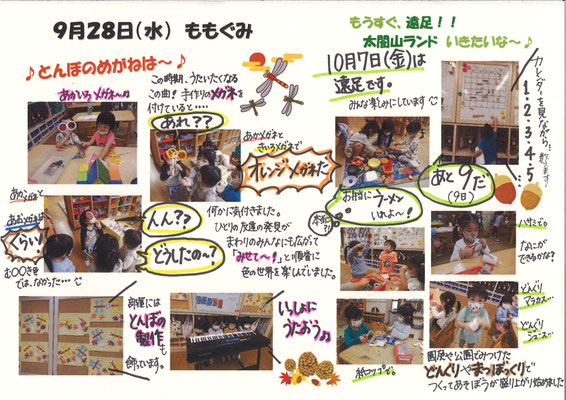 9月28日(水) ももぐみ
♪とんぼのめがねは〜♪
あかいろメガネ〜♪
この時期、うたいたくなる
この曲！手作りのメガネを
付けていると‥‥
あれ？？
あかメガネと
きいろメガネで
オレンジメガネだ
あかメガネと
あおメガネは
くらい！
む〇〇さき色
では、なかった‥‥
ん？？
どうしたの〜？
何かに気付きました。
ひとりの友達の発見が
まわりのみんなにも広がって
「みせて〜！」と順番に
色の世界を楽しんでいました。
部屋には
とんぼの
製作も
飾っています。
いっしょに
うたおう♪
もうすぐ、遠足！！
太閤山ランド いきたいな〜♪
10月7日(金)は
遠足です。
みんな楽しみにしています
カレンダーを見ながら
1・2・3・4・5
数えます
あと9だ
(9日)
お皿に
ラーメン
いれよ〜！
本当に？！
紙コップで。
ハサミで。
なにが
できるかな？
どんぐり
マラカス‥
どんぐり
ジュース‥
園庭や公園でみつけた
どんぐりやまつぼっくりで
つくってあそぼうが盛り上がり始めました